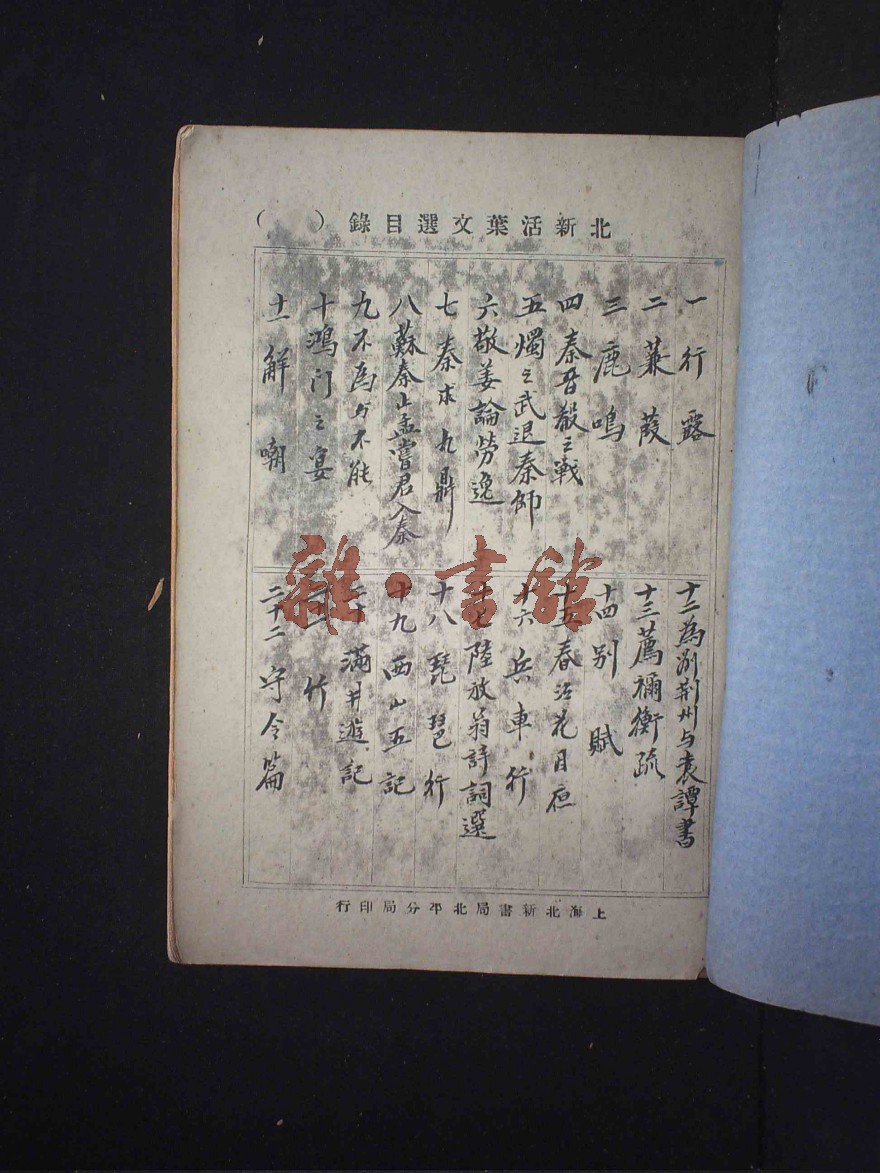 北新活葉文選目錄（　）
一 行露
二 蒹葭
三 鹿鳴
四 秦晉殽之戰
五 燭之武退秦師
六 敬姜論勞逸
七 秦求九鼎
八 蘇秦止孟嘗君入秦
九 不為与不能
十 鴻门之宴
十一 解嘲
十二 為刘荆州与袁譚書
十三 薦禰衡疏
十四 别賦
十五 春江花月夜
十六 兵車行
十七 陸放翁詩詞選
十八 琵琶行
十九 西山五記
二十 滿井遊記
二十一 竹
二十二 守令篇
上海北新書局北平分局印行
雜·書館